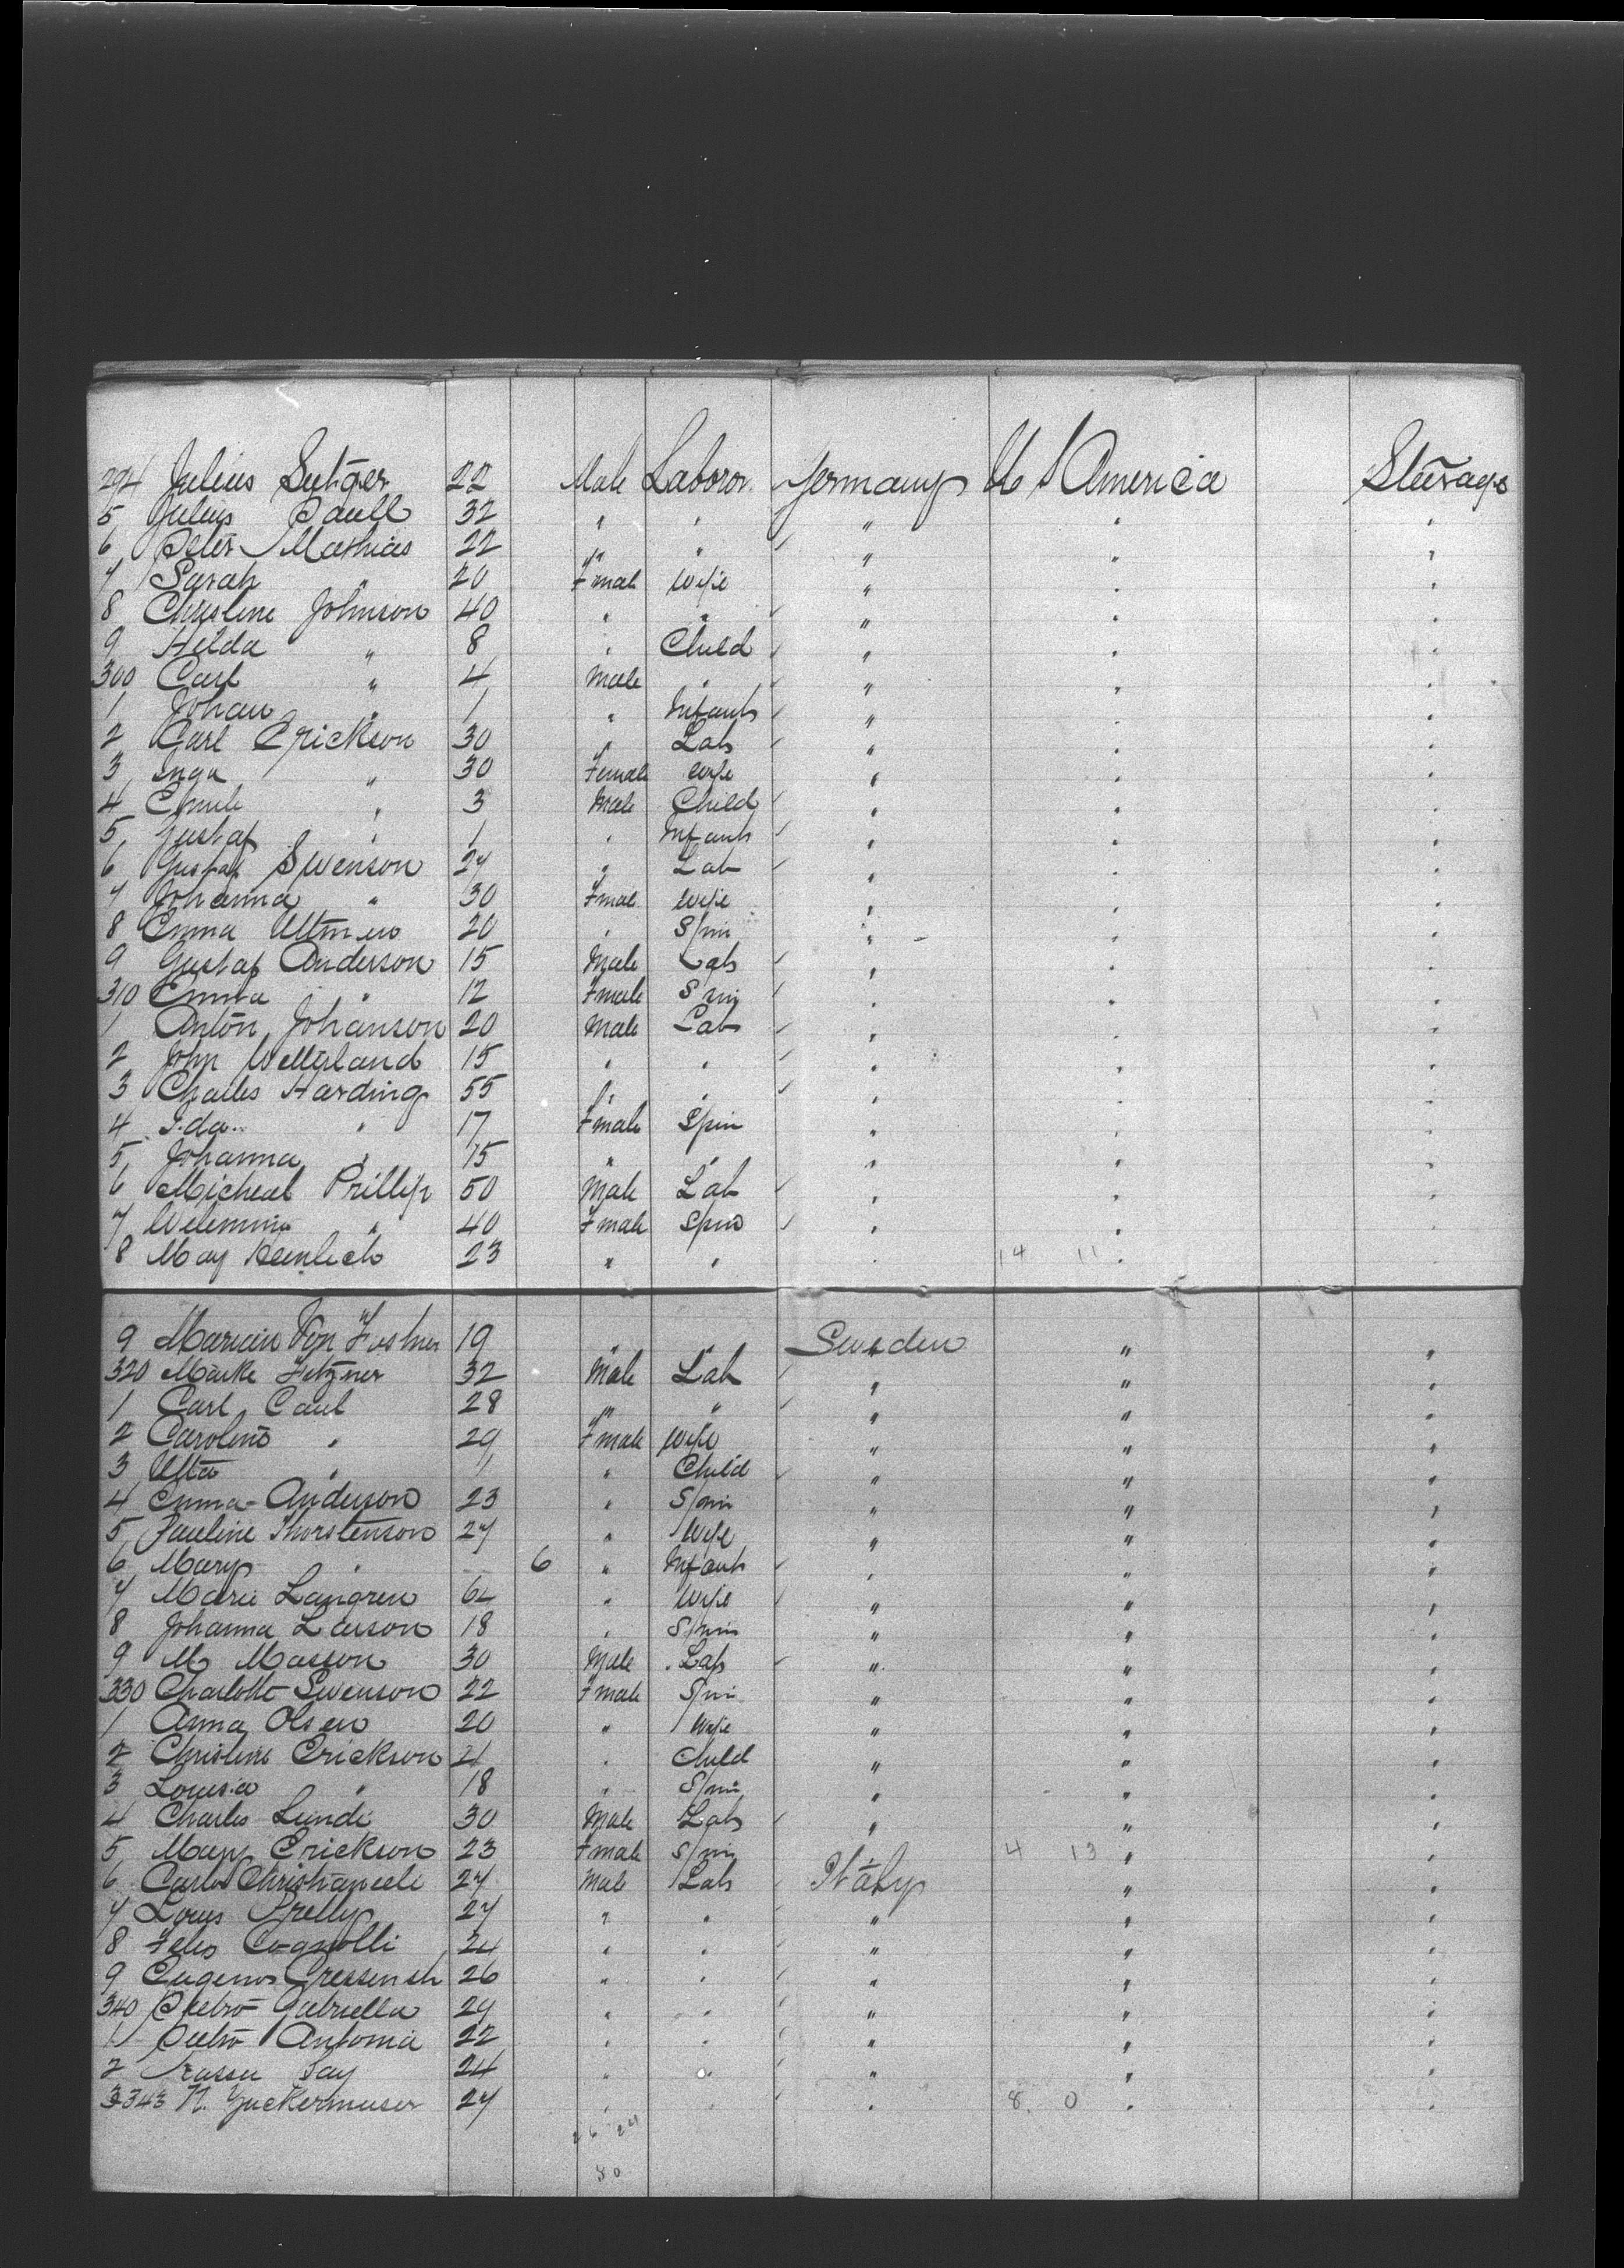 294 Julius Sutger 22 Male Laboror Germany U S America Steerage
5 Julius Paull 32 " " " " "
6 Peter Mathias 22 " " " " "
7 Sarah " 20 Fmale Wife " " "
8 Christine Johnson 40 " " " " "
9 Hilda " 8 " Child " " "
300 Carl " 4 Male " " " "
1 Johan " 1 " Infants " " "
2 Carl Erickson 30 " Lab " " "
3 Inga " 30 Female Wife " " "
4 Emile " 3 Male Child " " "
5 Gustaf " 1 " Infants " " "
6 Gustaf Swenson 27 " Lab " " "
7 Johanna " 30 Fmale Wife " " "
8 Emma 20 " Spin " " "
9 Gustaf Anderson 15 Male Lab " " "
310 Emma " 12 Fmale Spin " " "
1 Anton Johanson 20 Male Lab " " "
2 John 15 " " " " "
3 Challes Harding 55 " " " " "
4 Ida " 17 Fmale Spin " " "
5 Johanna " 15 " " " " "
6 Micheal Prillip 50 Male Lab " " "
7 " 40 Fmale Spin " " "
8 May 23 " " " 14 11 " "
9 Von 19 " " Sweden " "
320 Fetzner 32 Male Lab " " "
1 Carl Caul 28 " " " " "
2 Caroline " 29 Fmale Wife " " "
3 " 1 " Child " " "
4 Emma Anderson 23 " Spin " " "
5 Pauline Thorstenson 27 " Wife " " "
6 Mary " 6 " Infants " " "
7 Marie Langren 62 " Wife " " "
8 Johanna Larson 18 " Spin " " "
9 M Masson 30 Male Lab " " "
330 Charlotte Swenson 22 Fmale Spin " " "
1 Anna Olsen 20 " Wife " " "
2 Christine Erickson 21 " Child " " "
3 Louisa " 18 " Spin " " "
4 Charles Lunde 30 Male Lab " " "
5 Mary Erickson 23 Fmale Spin 4 13 " "
6 Carlo 27 Male Lab Italy " "
7 Louis 27 " " " " "
8 24 " " " " "
9 Eugenos 26 " " " " "
340 Pietro Gabriella 29 " " " " "
1 Pietro Antonia 22 " " " " "
2 24 " " " " "
343 N. Zuckermuser 27 " " " 8 0 " "
26 24
50